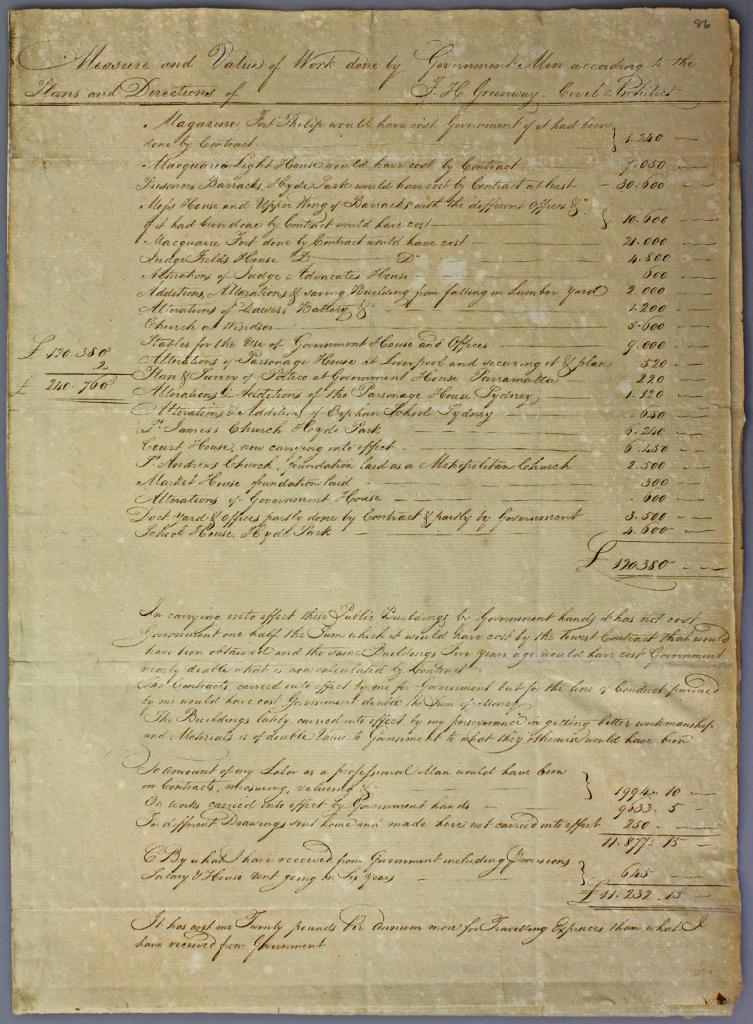 86
Measure and Value of Work done by Government Men according to the
Plans and Directions of F. H. Greenway. Civil Architect
Magazine, Fort Philip would have cost Government if it had been
done by Contract } 1.240
Macquarie Light House would have cost by Contract 7.050
Prisoners Barracks, Hyde Park would have cost by Contract at least 30.600
Mess House and Upper Wing of Barracks with the different Offices &c
if it had been done by Contract would have cost } 10.600
Macquarie Fort done by Contract would have cost 21.000
Judge Fields House Do Do 4.800
Alterations of Judge Advocates House 600
Additions, Alterations & saving Building from falling in Lumber Yard 2.000
Alterations of Dawes's Battery &c 1.200
Church at Windsor 5.600
Stables for the Use of Government House and Offices 9.000
Alterations of Parsonage House at Liverpool and securing it & plan 520
£ 120.380
2
£ 240.760
Plan & Survey of Portico at Government House Parramatta 220
Alterations & Additions of the Parsonage House Sydney 1.120
Alterations & Addition of Orphan School Sydney 640
St. James's Church Hyde Park 6.240
Court House, now carrying into effect 6.450
St Andrews Church, foundation laid as a Metropolitan Church 2.500
Market House foundation laid 300
Alterations of Government House 600
Dock Yard & Offices partly done by Contract & partly by Government 3.500
School House, Hyde Park 4.600
£ 120.380
In carrying into effect these Public Buildings by Government hands it has not cost
Government one half the Sum which it would have cost by the lowest Contract that would
have been obtained and the same Buildings Five years ago would have cost Government
nearly double what is now calculated by Contract
The Contracts carried into effect by me for Government but for the line of Conduct pursued
by me would have cost Government double the Sum of Money
The Buildings lately carried into effect by my perseverance in getting better workmanship
and Materials is of double Value to Government to what they otherwise would have been
To amount of my Labor as a professional Man would have been
on Contracts, measuring, valueing &c } 1994. 10
On works carried into effect by Government hands 9633. 5
For different Drawings sent home and made here not carried into effect 250
11.877. 15
C By what I have received from Government including Provisions
Salary & House rent going on Six Years } 645
£ 11.232. 15
It has cost me Twenty pounds Per Annum more for Travelling Expences than what I
have received from Government